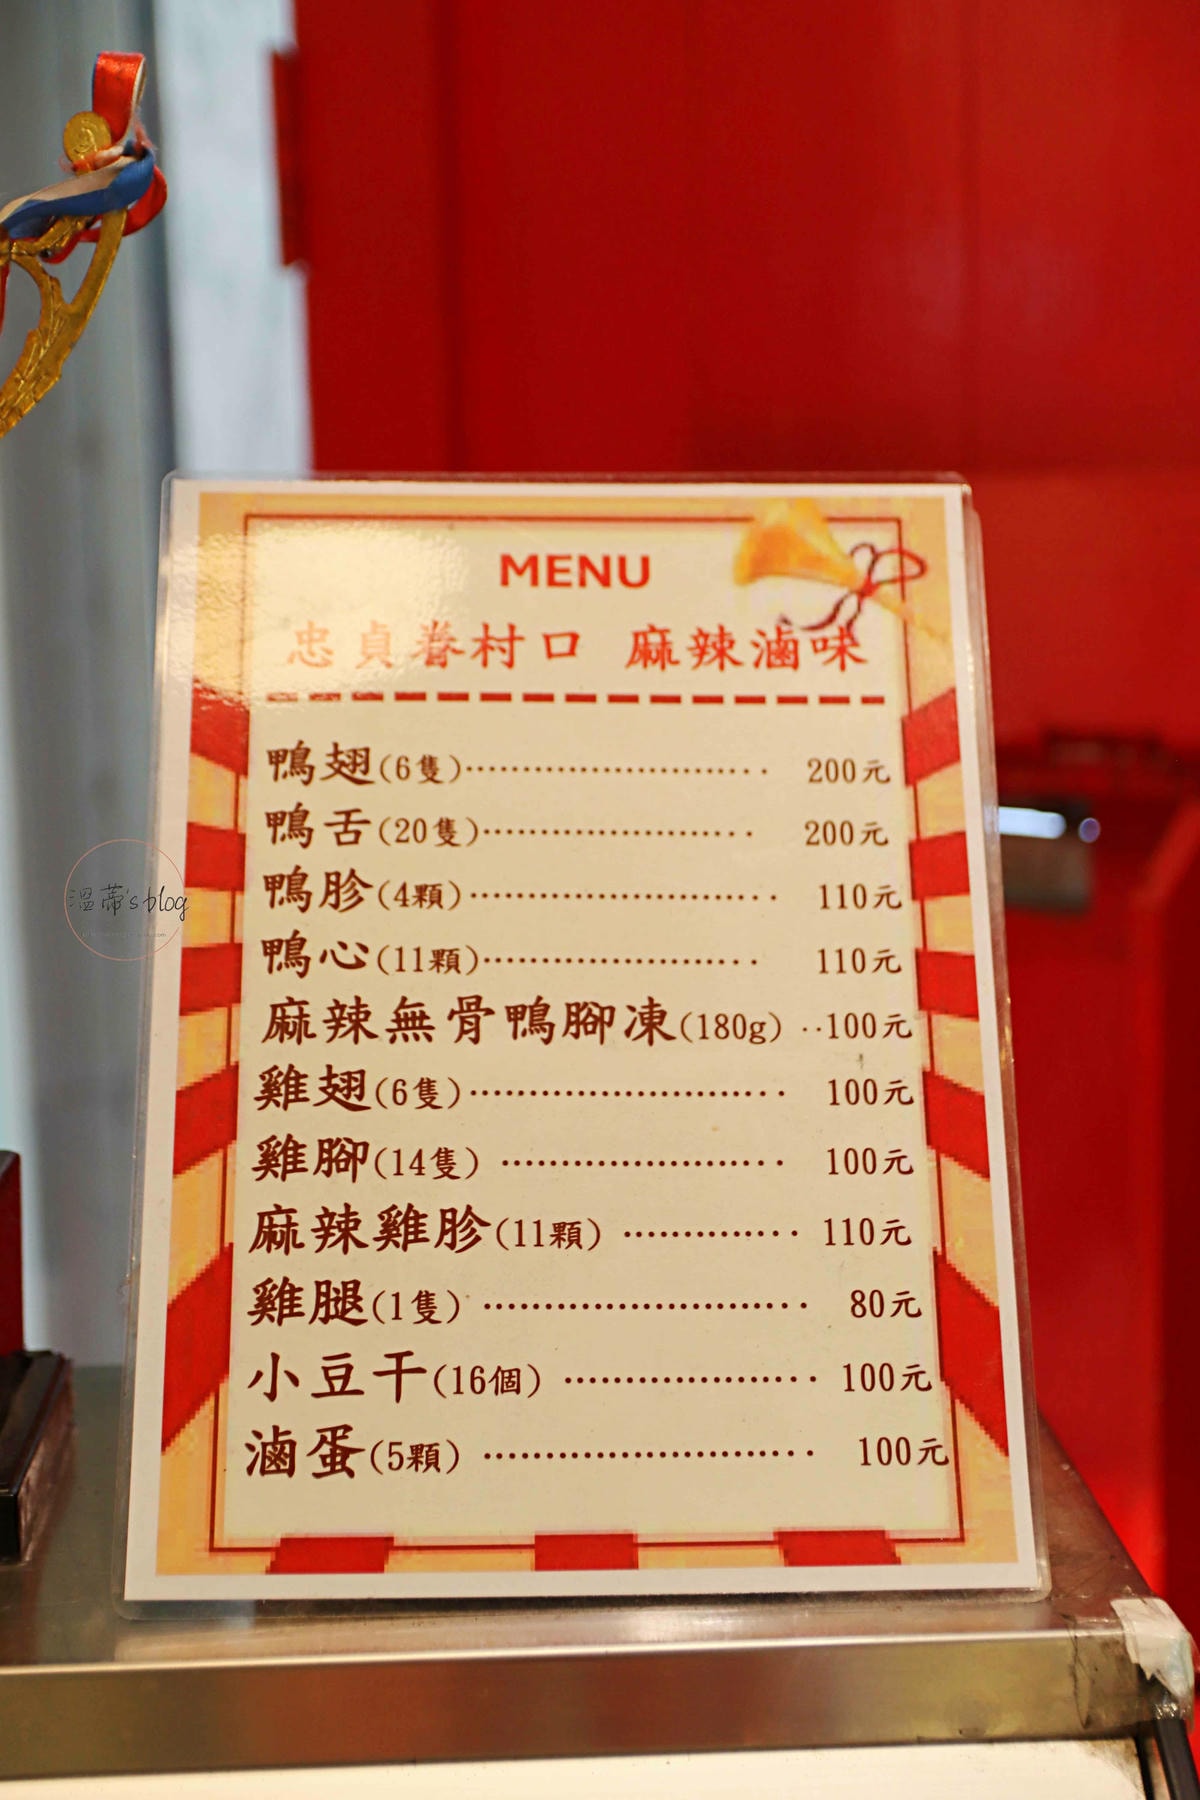 MENU
忠貞眷村口 麻辣滷味
鴨翅(6隻)........................ 200元
鴨舌(20隻)........................ 200元
鴨胗(4顆)........................ 110元
鴨心(11顆)........................ 110元
麻辣無骨鴨腳凍(180g) ..100元
雞翅(6隻)........................ 100元
雞腳(14隻) ...................... 100元
麻辣雞胗(11顆) .............. 110元
雞腿(1隻) ........................ 80元
小豆干(16個) .................. 100元
滷蛋(5顆) ........................ 100元
溫蒂's blog